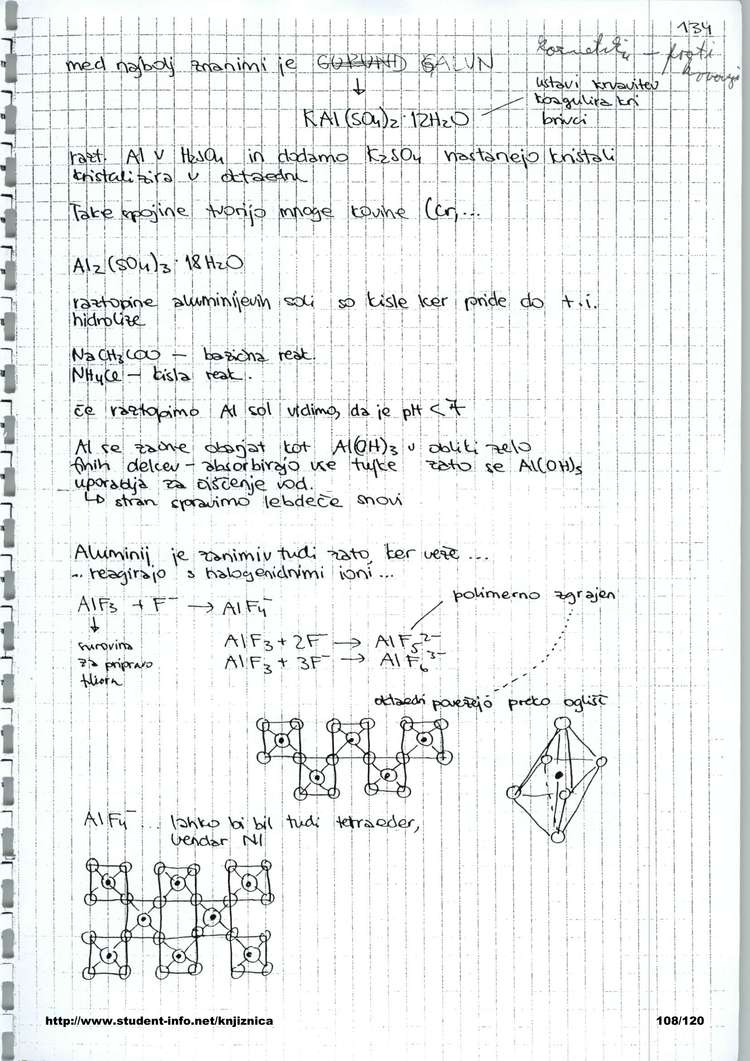 134
kozmetiki – proti
med najbolj znanimi je GALUN
ustavi krvavitev
koagulira kri
brivci
KAl(SO4)2·12H2O
razt. Al v H2SO4 in dodamo K2SO4 nastanejo kristali
kristalizira v oktaedru
Take spojine tvorijo mnoge kovine (Cr,...
Al2(SO4)3·18H2O
raztopine aluminijevih soli so kisle ker pride do t.i.
hidrolize
NaCH3COO – bazična reak.
NH4Cl – kisla reak.
če raztopimo Al sol vidimo, da je pH < 7
Al se začne obarjat kot Al(OH)3 v obliki zelo
finih delcev – absorbirajo vse tujke zato se Al(OH)3
uporablja za čiščenje vod.
↳ stran spravimo lebdeče snovi
Aluminij je zanimiv tudi zato, ker veže ...
... reagirajo s halogenidnimi ioni ...
AlF3 + F⁻ → AlF4⁻
polimerno zgrajen
↓
surovina
za pripravo
fluora
AlF3 + 2F⁻ → AlF5²⁻
AlF3 + 3F⁻ → AlF6³⁻
oktaedri povežejo preko oglišč
AlF4⁻ ... lahko bi bil tudi tetraeder,
vendar NI
http://www.student-info.net/knjiznica
108/120